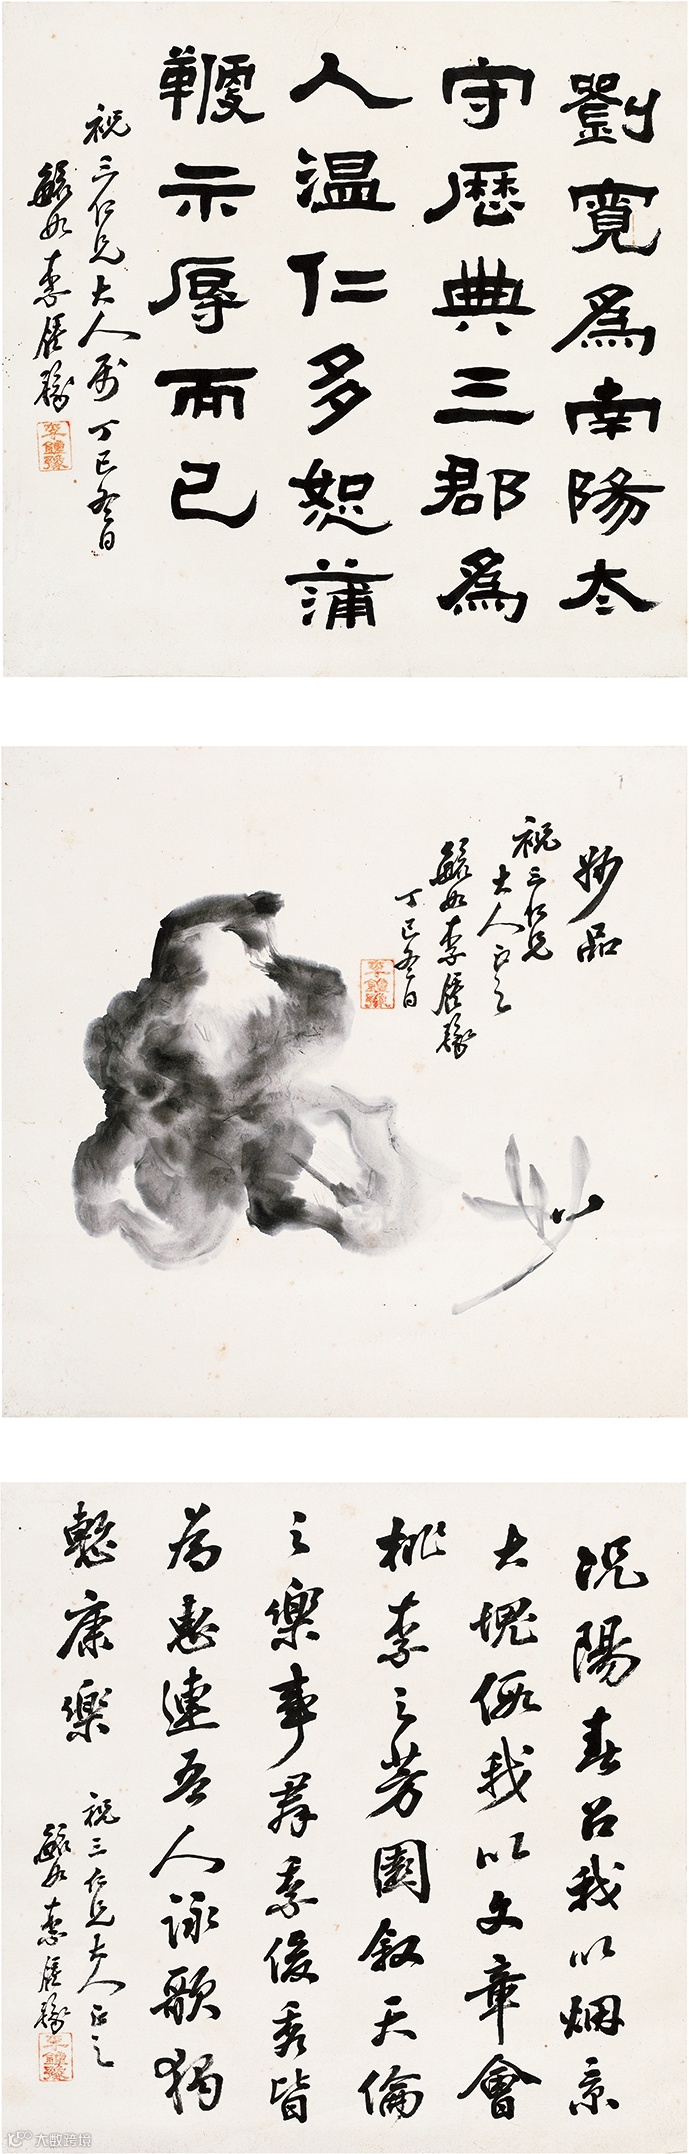 劉寬爲南陽太
守歷典三郡爲
人温仁多恕蒲
鞭示辱而已
祝三仁兄大人属 丁巳冬日
毓如李鍾豫
李鍾豫
妙品
祝三仁兄
大人正之
毓如李鍾豫
丁巳冬日
李鍾豫
况陽春召我以烟景
大塊假我以文章會
桃李之芳園叙天倫
之樂事群季俊秀皆
為惠連吾人詠歌獨
慙康樂
祝三仁兄大人正之
毓如李鍾豫
李鍾豫
大数跨境